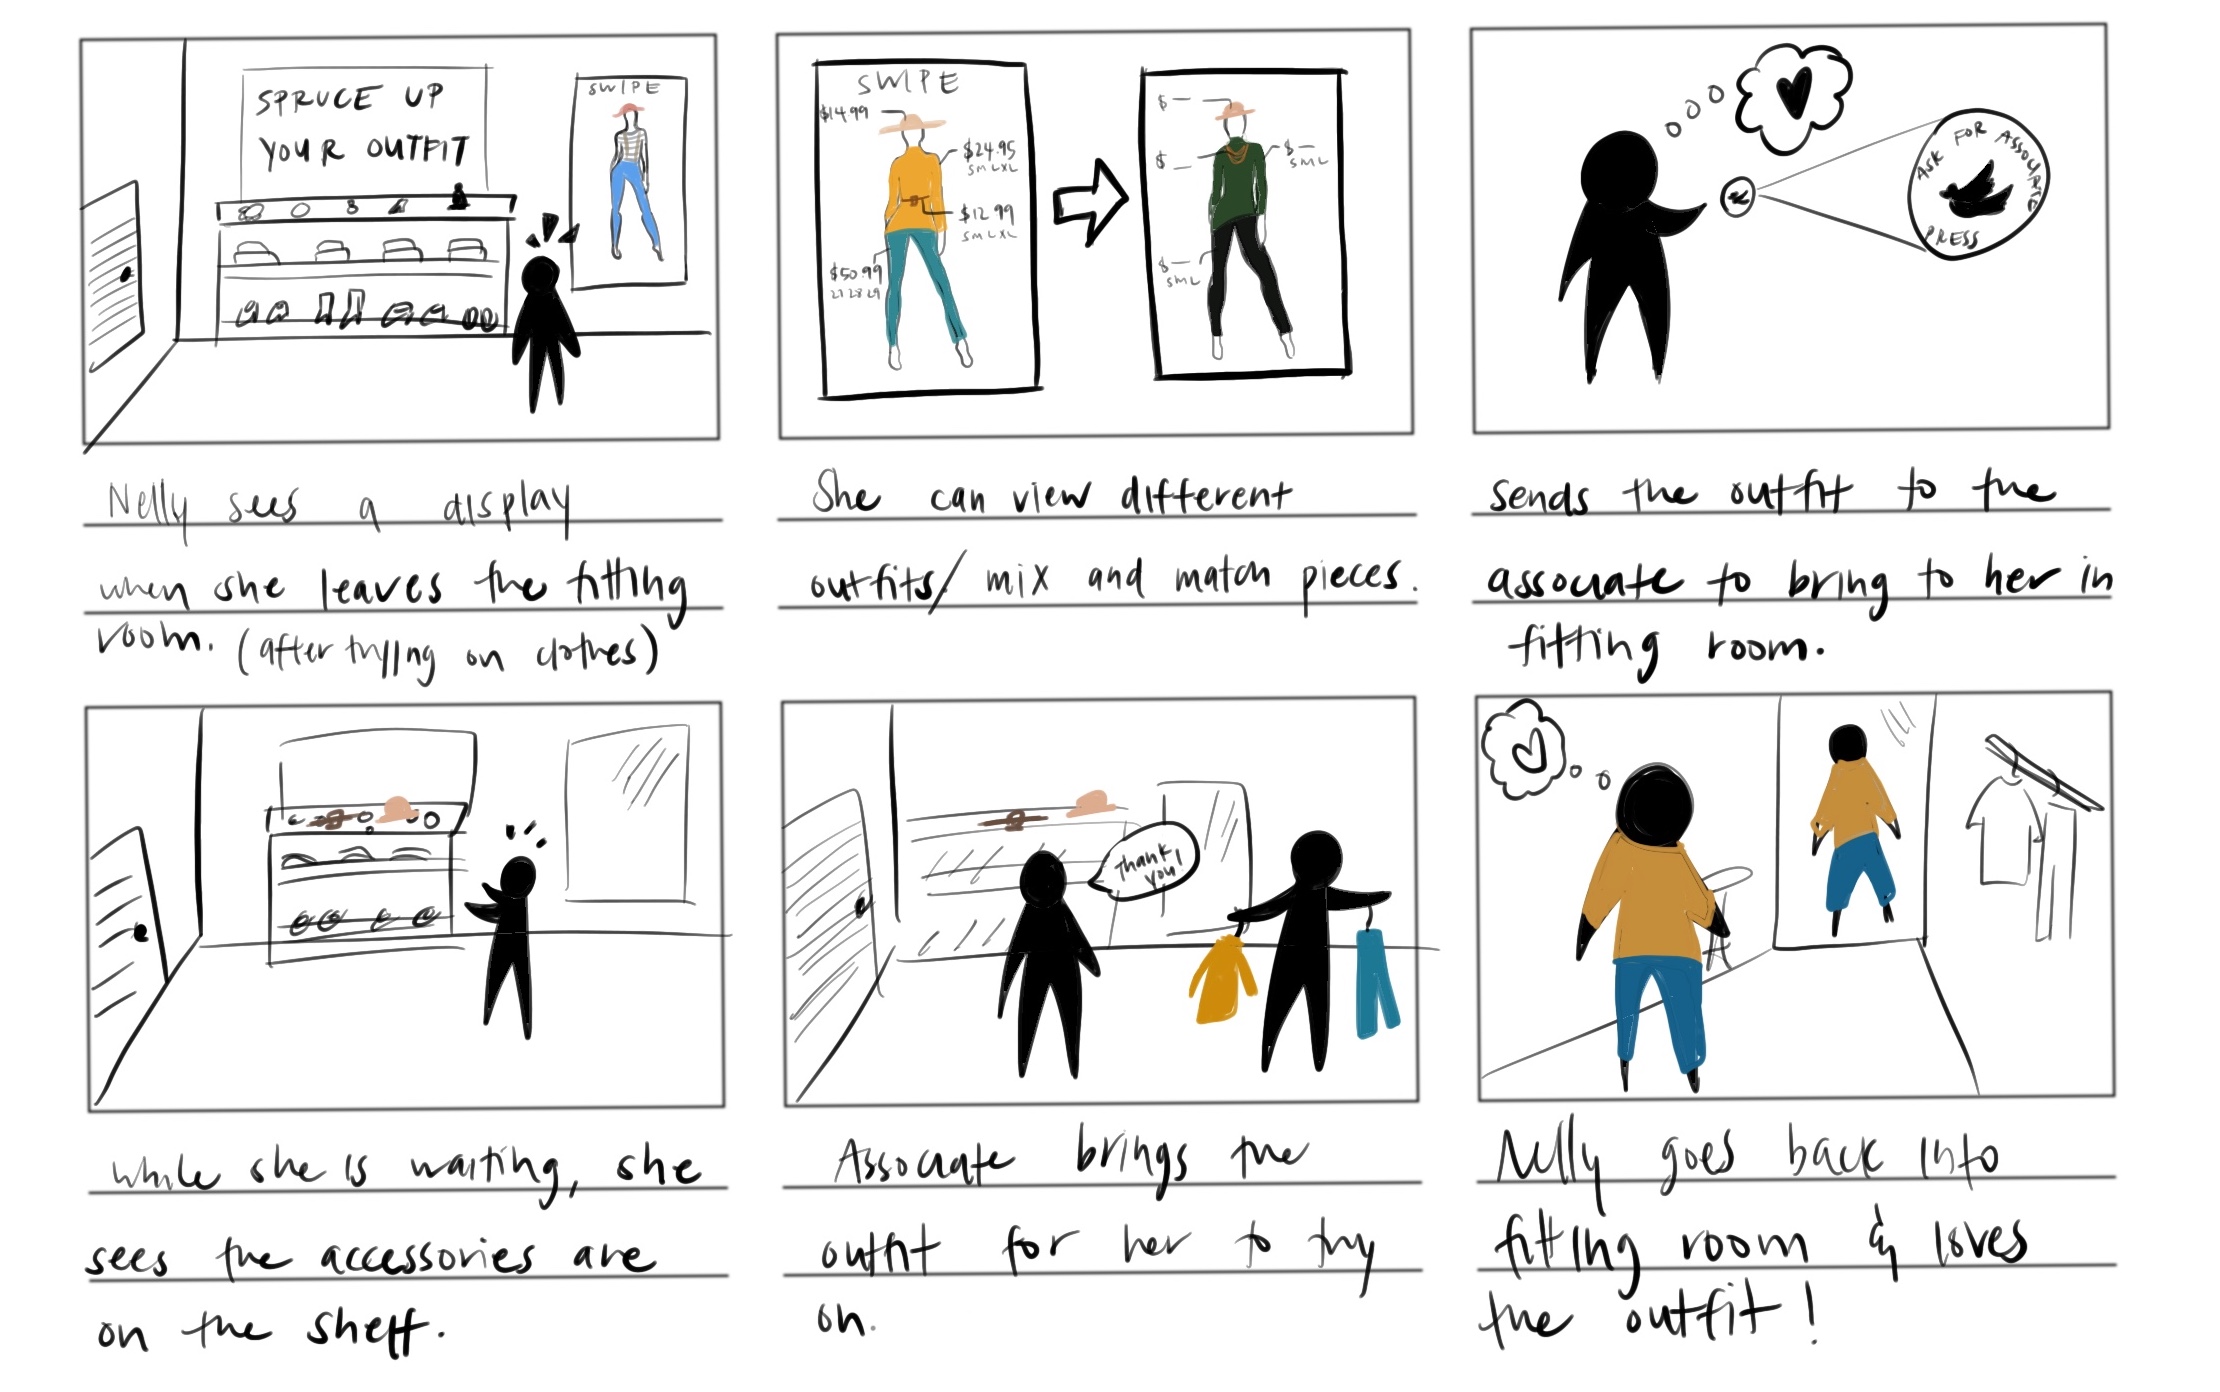 SPRUCE UP
YOUR OUTFIT
SWIPE
Nelly sees a display
when she leaves the fitting
room. (after trying on clothes)
SWIPE
$14.99
$24.95
S M L XL
$12.99
S M L XL
$50.99
27 28 29
$ —
$ —
$ —
S M L
$ —
S M L
She can view different
outfits/ mix and match pieces.
ASK FOR ASSOCIATE
PRESS
sends the outfit to the
associate to bring to her in
fitting room.
while she is waiting, she
sees the accessories are
on the shelf.
Thank
you
Associate brings the
outfit for her to try
on.
Nelly goes back into
fitting room & loves
the outfit!